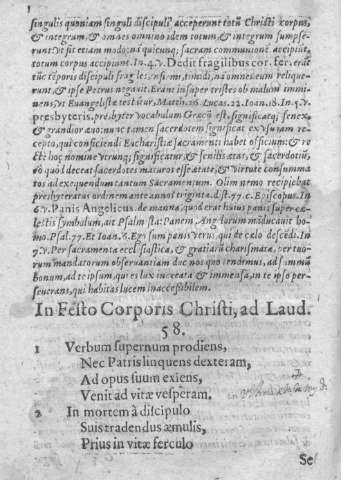 singulis quoniam singuli discipuli acceperunt totũ Christi corpus,
& integrum, & omnes omnino idem totum, & integrum sumpse-
runt: ut sit etiam modo: na quicunq; sacram communione accipiũt,
totum corpus accipiunt. In. 4. v. Dedit fragilibus cor. fer. erãt
tũc têporis discipuli fragiles, infirmi, timidi, nã omnes eum relique-
runt, & ipse Petrus negavit. Erant insuper tristes ob malum immi-
nens, ut Euangelistæ testãtur, Matth. 26. Lucas. 22. Ioan. 18. In. 5. v.
presbyteris, presbyter vocabulum Græcũ est, significatq; senex,
& grandior æuo: nunc tamen sacerdotem significat ex vsu iam re-
cepto, qui conficiendi Eucharistiæ sacramenti habet officium: & re
cte hoc nomine vtrunq; significatur, & senilis ætas, & sacerdotiũ,
eo quod deceat sacerdotes maturos esse ætate, & virtute consumma
tos ad exequendum tantum Sacramentum. Olim nemo recipiebat
presbyteratus ordinem ante annos triginta. dist. 77. c. Episcopus. In
6. v. Panis Angelicus. de manna, quod erat huius panis super cæ-
lestis symbolum, ait Psalmista: Panem Angelorum mãducauit ho-
mo. Psal. 77. Et Ioan. 6. Ego sum panis viuus, qui de cælo descẽdi. In
7. v. Per sacramenta ecclesiastica, & gratiarũ charismata, per tuo-
rum mandatorum obseruantiam duc nos quo tendimus, ad summũ
bonum, ad te ipsum, qui es lux increata & immensa, in te ipso per-
seucrans, qui habitas lucem inaccessibilem.
In Festo Corporis Christi, ad Laud.
58.
1 Verbum supernum prodiens,
Nec Patris linquens dexteram,
Ad opus suum exiens,
Venit ad vitæ vesperam.
2 In mortem à discipulo
Suis tradendus æmulis,
Prius in vitæ ferculo
Se